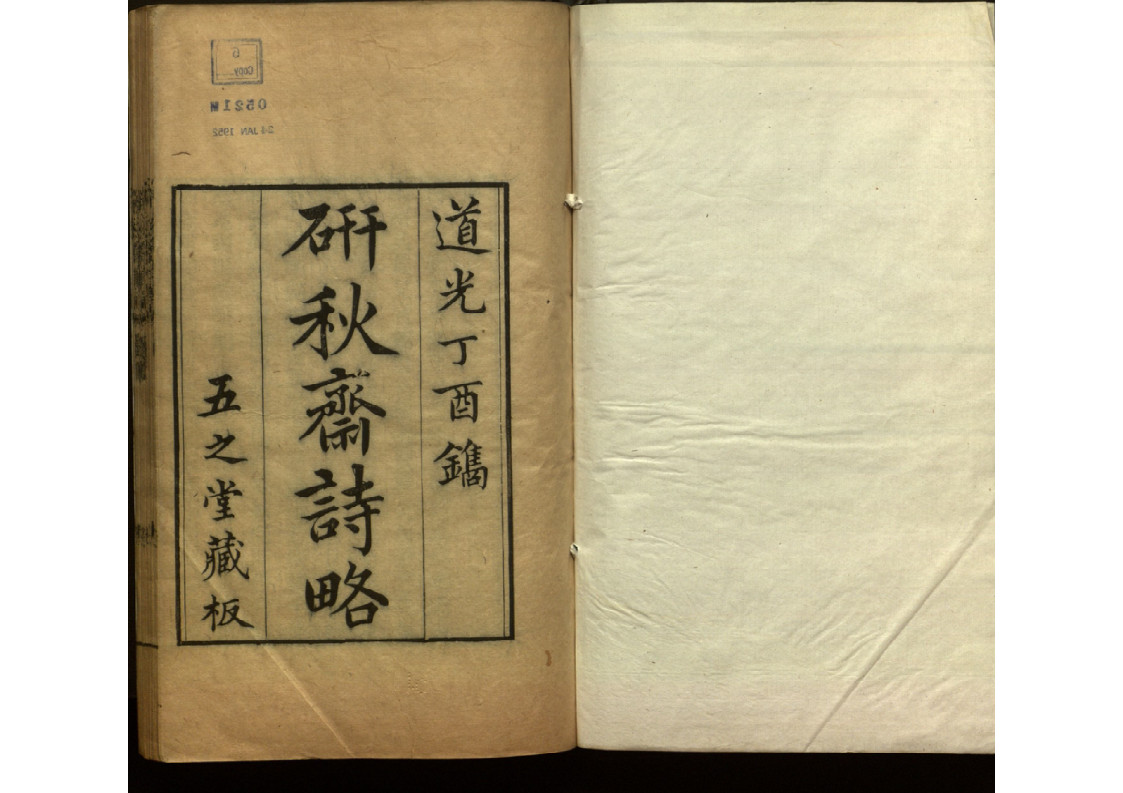 道光丁酉鐫
硏秋齋詩略
五之堂藏板
Copy
0521M
24 JAN 1952